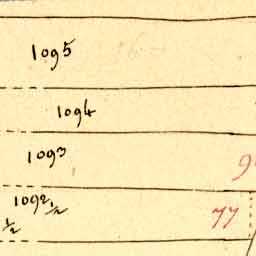 1095
1094
1093
1092 1/2
77
1/2